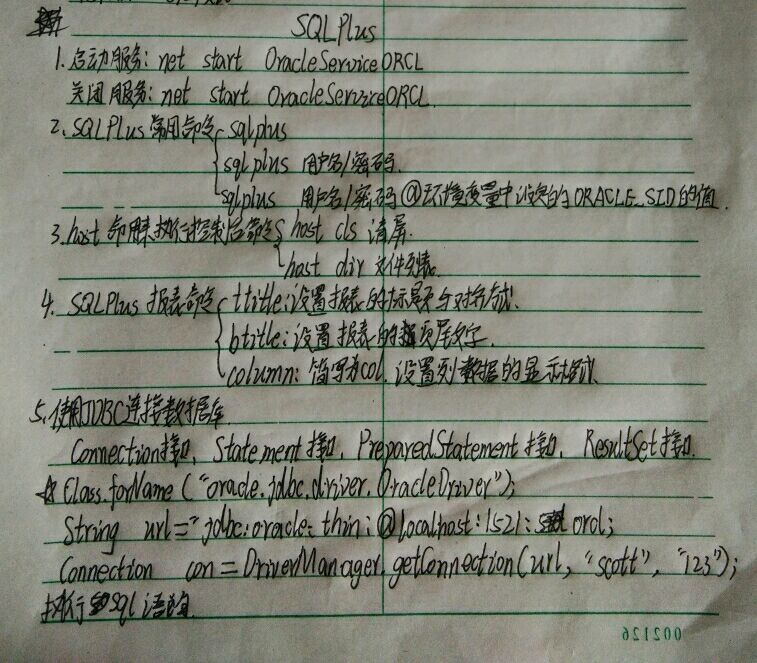 SQLPlus
1. 启动服务: net start OracleServiceORCL
关闭服务: net start OracleServiceORCL
2. SQLPlus 常用命令 sqlplus
sqlplus 用户名/密码.
sqlplus 用户名/密码@环境变量中设定的ORACLE_SID的值.
3. host 命用来执行控制台命令 host cls 清屏.
host dir 文件列表.
4. SQLPlus 报表命令 ttitle: 设置报表的标题与对齐方式.
btitle: 设置报表的页尾文字.
column: 简写为col. 设置列数据的显示格式.
5. 使用JDBC连接数据库.
Connection接口, Statement接口, PreparedStatement接口, ResultSet接口.
☆ Class.forName("oracle.jdbc.driver.OracleDriver");
String url="jdbc:oracle:thin:@localhost:1521:orcl;
Connection con=DriverManager.getConnection(url, "scott", "123");
执行Sql语句.
002126